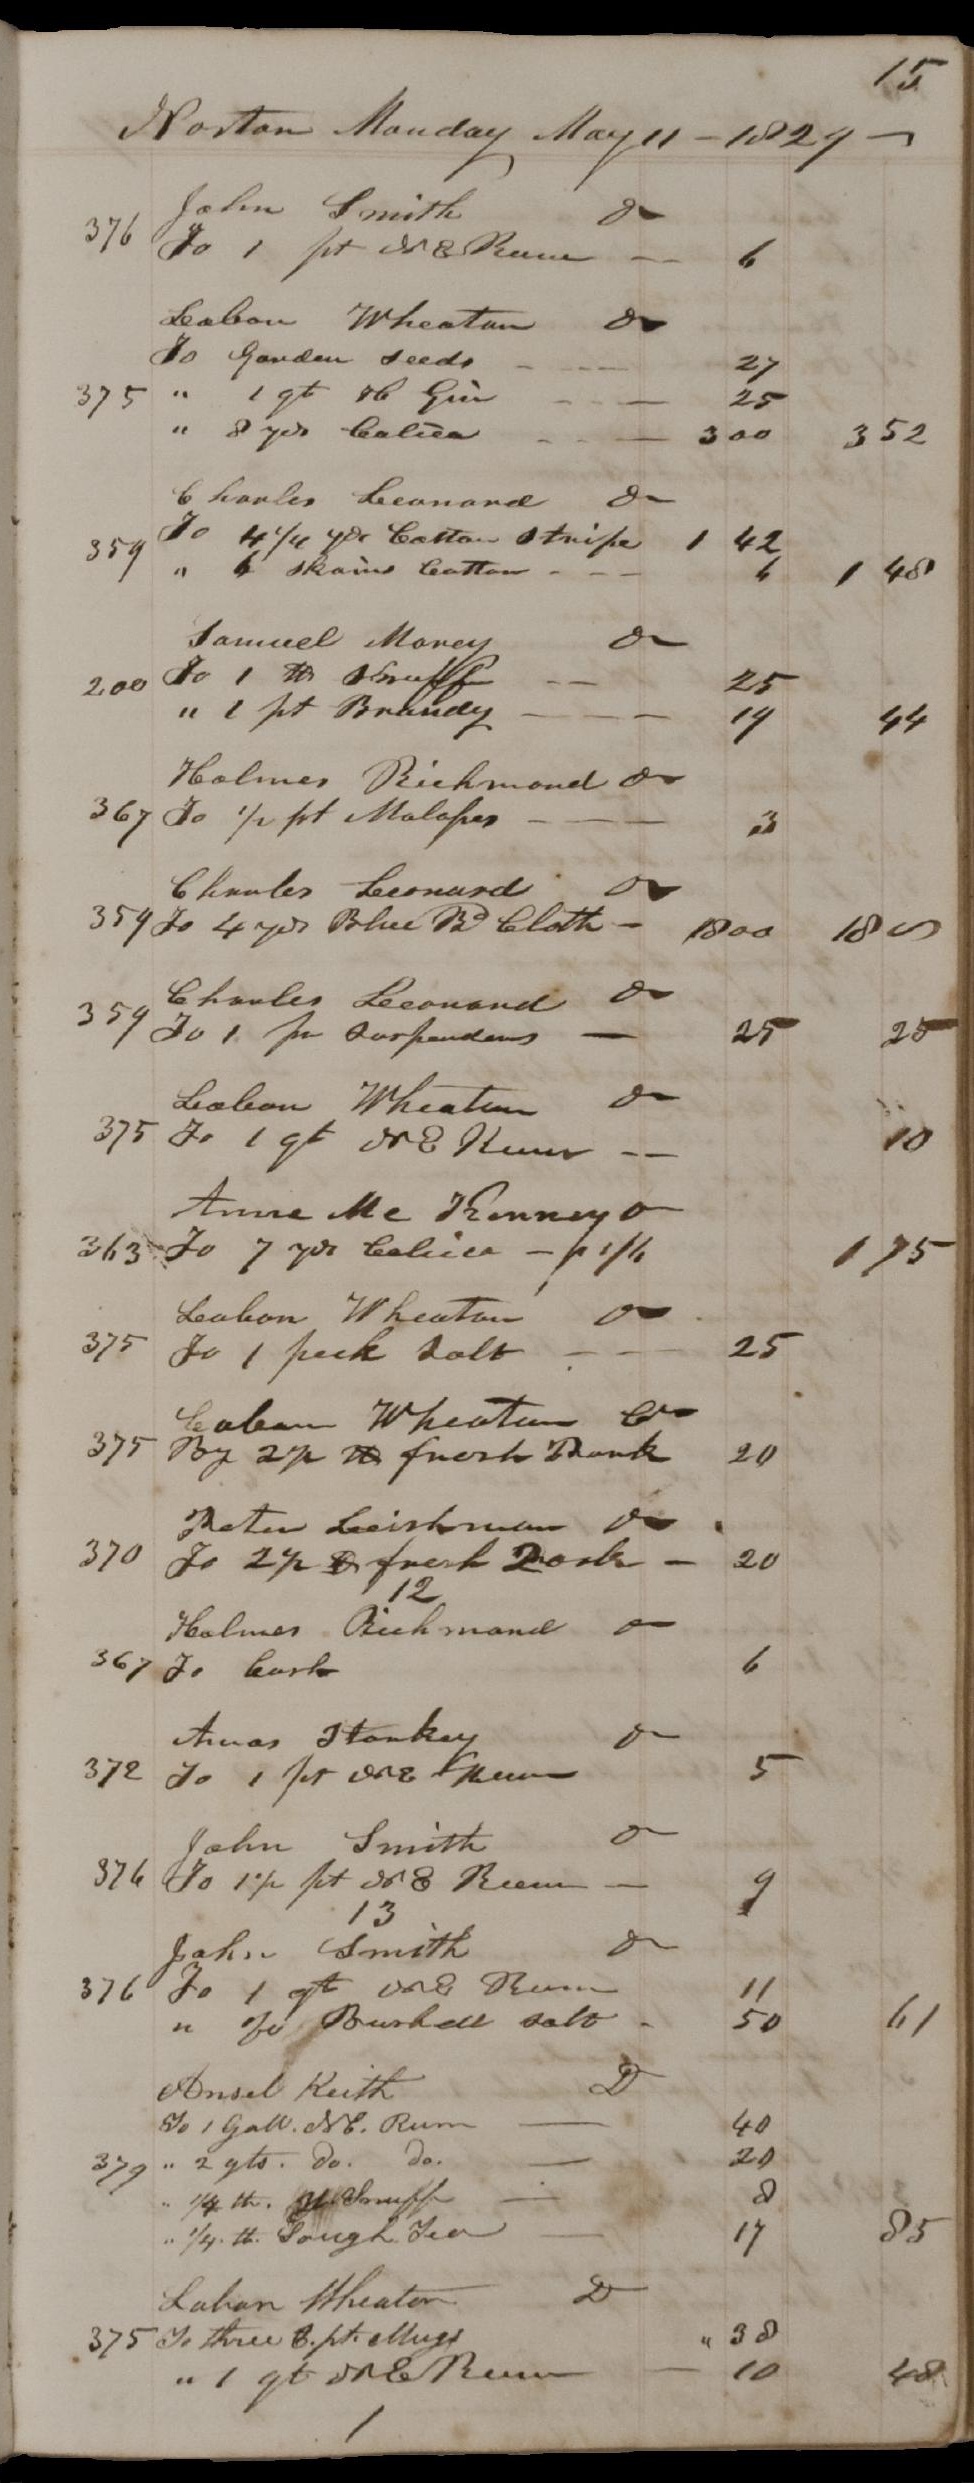 15
Norton Monday May 11 - 1829 -
John Smith Dr
376 To 1 pt N E Rum 6
Laban Wheaton Dr
To Garden seeds 27
375 " 1 qt H Gin 25
" 8 yds Calico 3 00 3 52
Charles Leonard Dr
To 4 1/4 yds Cotton Stripe 1 42
359 " 6 skains Cotton 6 1 48
Samuel Morey Dr
200 To 1 lb Snuff 25
" 1 pt Brandy 19 44
Holmes Richmond Dr
367 To 1/2 pt Molasses 3
Charles Leonard Dr
359 To 4 yds Blue Bd Cloth 18 00 18 00
Charles Leonard Dr
359 To 1 pr suspenders 25 25
Laban Wheaton Dr
375 To 1 qt N E Rum 10
Anne Mc Kenney Dr
363 To 7 yds Calico - p 1/6 1 75
Laban Wheaton Dr
375 To 1 peck Salt 25
Laban Wheaton Cr
375 By 2 1/2 lb fresh Pork 20
Peter Leishman Dr
370 To 2 1/2 lb fresh Pork 20
12
Holmes Richmond Dr
367 To Cash 6
Amas Stankey Dr
372 To 1 pt N E Rum 5
John Smith Dr
376 To 1 1/2 pt N E Rum 9
13
John Smith Dr
376 To 1 qt N E Rum 11
" Bushell salt 50 61
Ansel Keith D
To 1 Gall. N E. Rum 40
379 " 2 qts. do. do. 20
" 1/4 lb. Snuff 8
" 1/4 lb. Sough Tea 17 85
Laban Wheaton D
375 To three pt. Mugs " 38
" 1 qt N E Rum 10 48
1